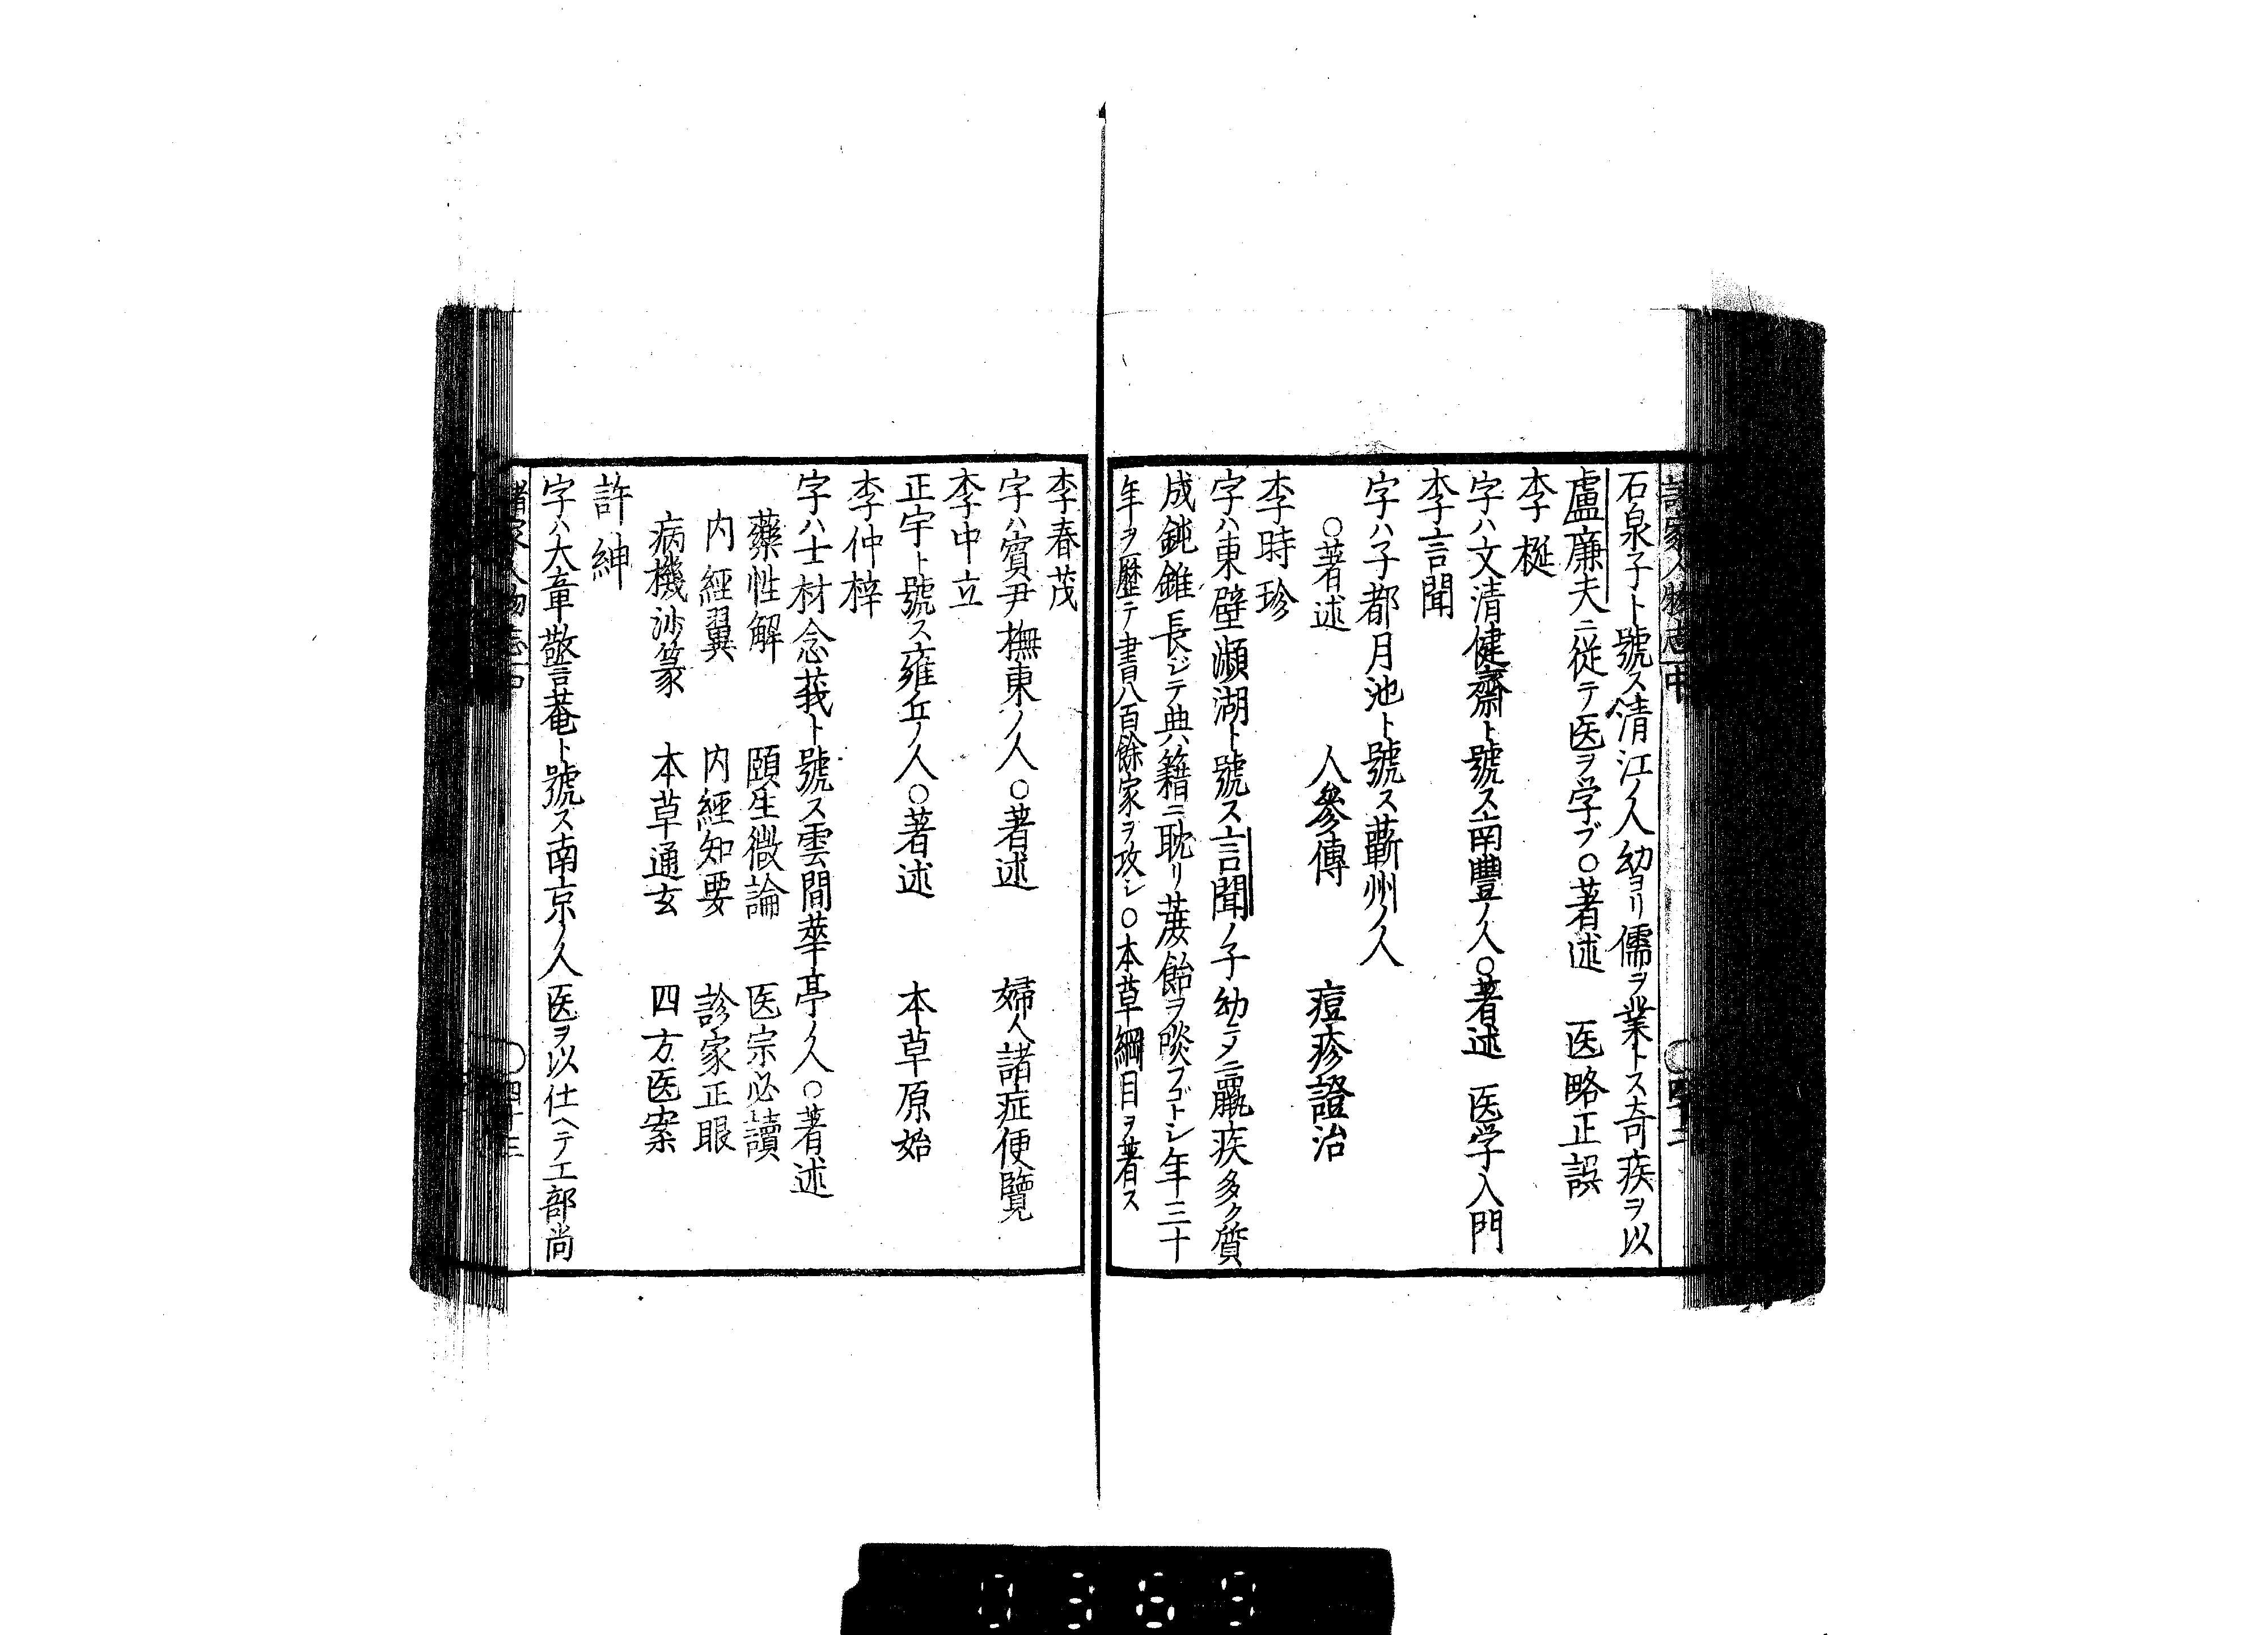 諸家人物志中
四十二
石泉子ト號ス清江ノ人幼ヨリ儒ヲ業トス奇疾ヲ以
盧廉夫ニ従テ医ヲ学ブ○著述　医略正誤
李梴
字ハ文清健齋ト號ス南豐ノ人○著述　医学入門
李言聞
字ハ子都月池ト號ス蘄州ノ人
○著述　人參傳　痘疹證治
李時珍
字ハ東壁瀕湖ト號ス言聞ノ子幼ニ羸疾多ク質
成鈍錐長ジテ典籍ニ耽リ蔗飴ヲ啖フゴトシ年三十
年ヲ歴テ書八百餘家ヲ攻シ○本草綱目ヲ著ス
李春茂
字ハ賓尹橅東ノ人○著述　婦人諸症便覽
李中立
正宇ト號ス雍丘ノ人○著述　本草原始
李仲梓
字ハ士材念莪ト號ス雲間華亭ノ人○著述
藥性解　頤生微論　医宗必讀
内經翼　内經知要　診家正眼
病機沙篆　本草通玄　四方医案
許紳
字ハ大章警菴ト號ス南京ノ人医ヲ以仕ヘテ工部尚
諸家人物志中
四十三
0369